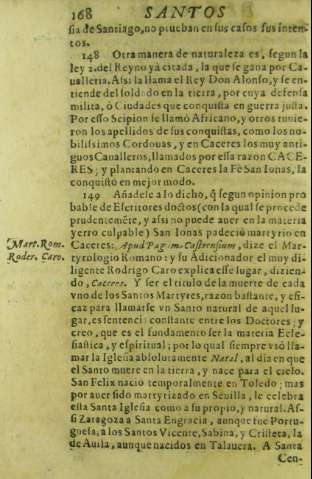 168 SANTOS
sia de Santiago, no prueban en sus casos sus inten-
tos.
148 Otra manera de naturaleza es, segun la
ley 2. del Reyno yà citada, la que se gana por Ca-
ualleria. Assi la llama el Rey Don Alonso, y se en-
tiende del soldado en la tierra, por cuya defensa
milita, ò Ciudades que conquista en guerra justa.
Por esso Scipion se llamò Africano, y otros tuuie-
ron los apellidos de sus conquistas, como los no-
bilissimos Cordouas, y en Caceres los muy anti-
guos Caualleros, llamados por essa razon CACE-
RES; y plantando en Caceres la Fè San Ionas, la
conquistò en mejor modo.
149 Añadese a lo dicho, q̃ segun opinion pro
bable de Escritores doctos (con la qual se procede
prudentemẽte, y assi no puede auer en la materia
yerro culpable) San Ionas padeciò martyrio en
Mart. Rom. Caceres: Apud Pagum Castrensium, dize el Mar-
Roder. Caro. tyrologio Romano: y su Adicionador el muy di-
ligente Rodrigo Caro explica esse lugar, dizien-
do, Caceres. Y ser el titulo de la muerte de cada
vno de los Santos Martyres, razon bastante, y efi-
caz para llamarse vn Santo natural de aquel lu-
gar, es sentencia constante entre los Doctores; y
creo, que es el fundamento ser la materia Ecle-
siastica, y espiritual; por lo qual siempre vsò lla-
mar la Iglesia absolutamente Natal, al dia en que
el Santo muere en la tierra, y nace para el cielo.
San Felix naciò temporalmente en Toledo; mas
por auer sido martyrizado en Seuilla, le celebra
esta Santa Iglesia como a su propio, y natural. As-
si Zaragoza a Santa Engracia, aunque fue Portu-
guesa, a los Santos Vicente, Sabina, y Cristeta, la
de Auila, aunque nacidos en Talauera. A Santa
Cen-